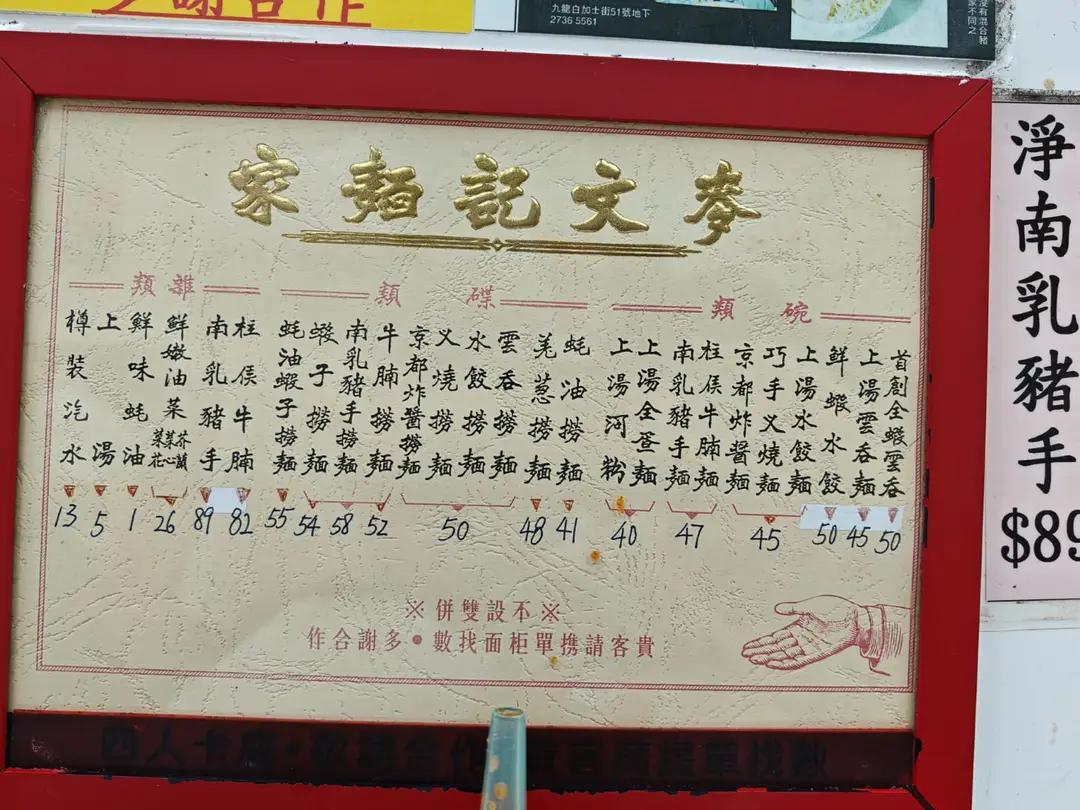 九龍白加士街51號地下
2736 5561
麥文記麵家
碗類
首創全蝦雲呑
50
上湯雲呑麵
45
鮮蝦水餃
50
上湯水餃麵
巧手叉燒麵
京都炸醬麵
45
柱侯牛腩麵
南乳豬手麵
47
上湯全疍麵
上湯河粉
40
碟類
蚝油撈麵
41
羗葱撈麵
48
雲呑撈麵
水餃撈麵
叉燒撈麵
京都炸醬撈麵
50
牛腩撈麵
52
南乳豬手撈麵
58
蝦子撈麵
54
蚝油蝦子撈麵
55
雜類
柱侯牛腩
82
南乳豬手
89
鮮嫩油菜
芥蘭
菜心
菜花
26
鮮味蚝油
1
上湯
5
樽裝汽水
13
※不設雙併※
貴客請携單柜面找數●多謝合作
淨南乳豬手
$89